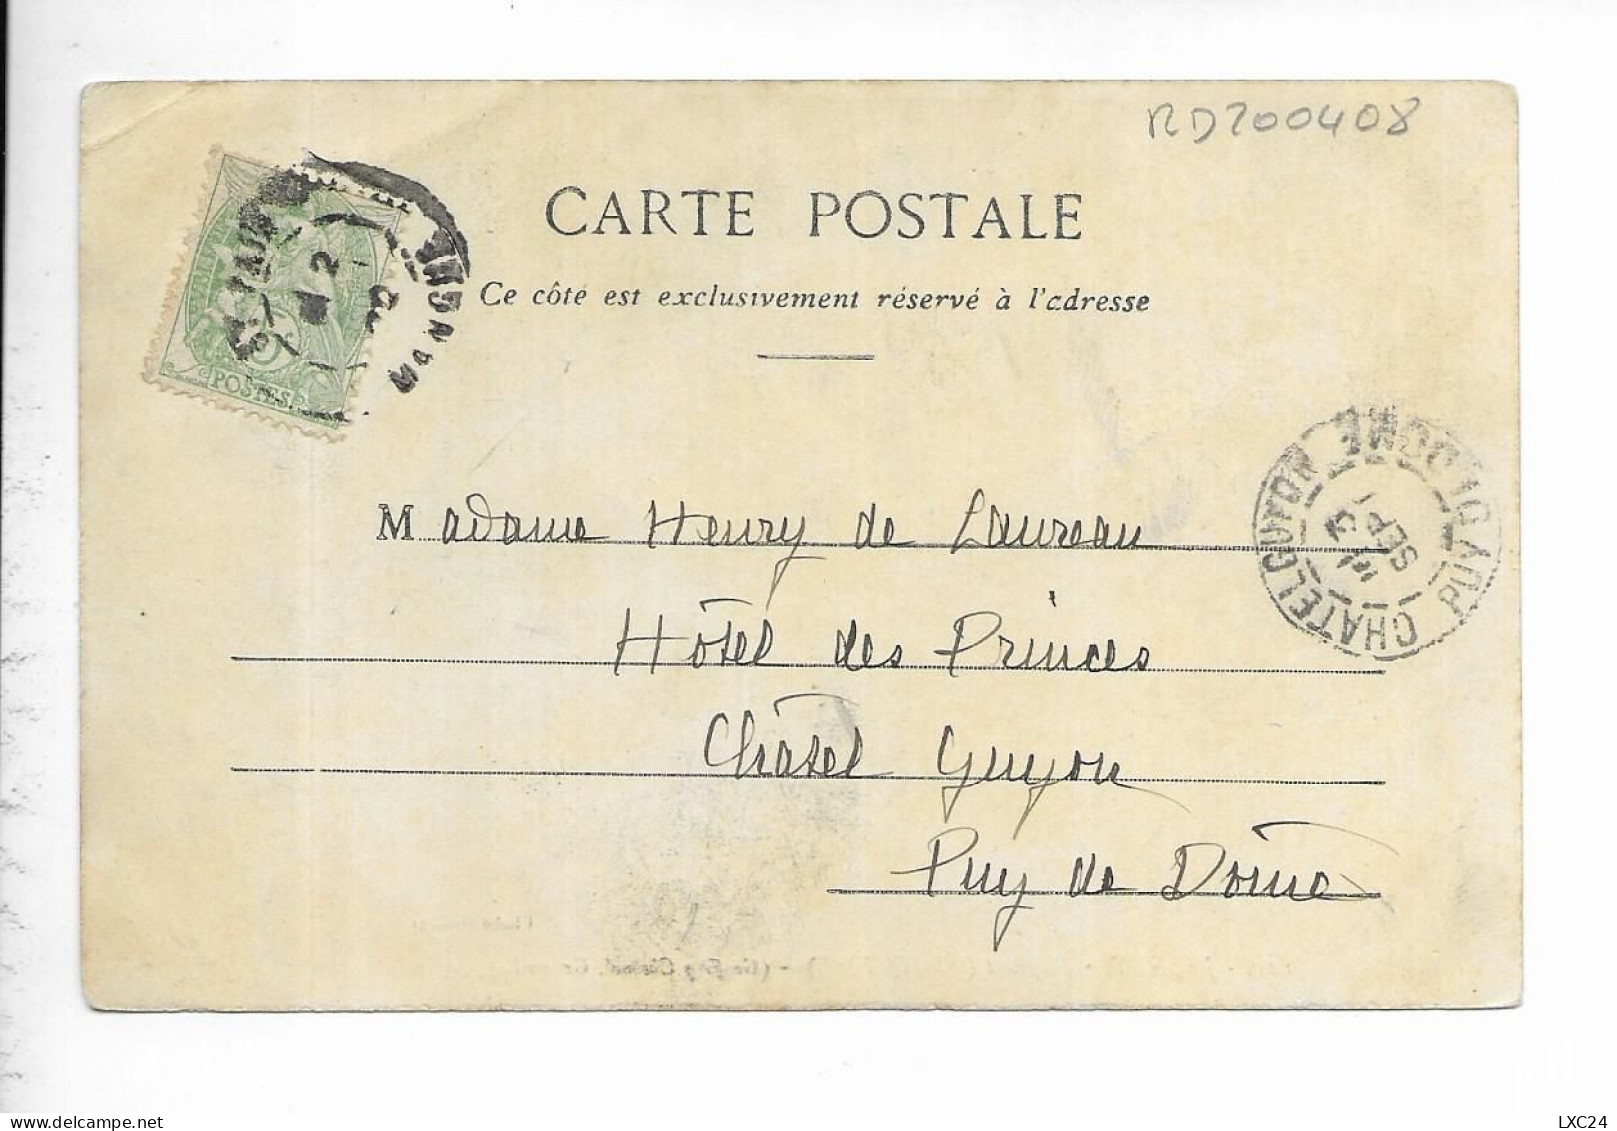 RD200408
CARTE POSTALE
Ce côté est exclusivement réservé à l'adresse
POSTES
Madame Henry de Laureau
Hôtel des Princes
Châtel Guyon
Puy de Dôme
CHATELGUYON PUY DE DOME
3 SEPT
LXC24